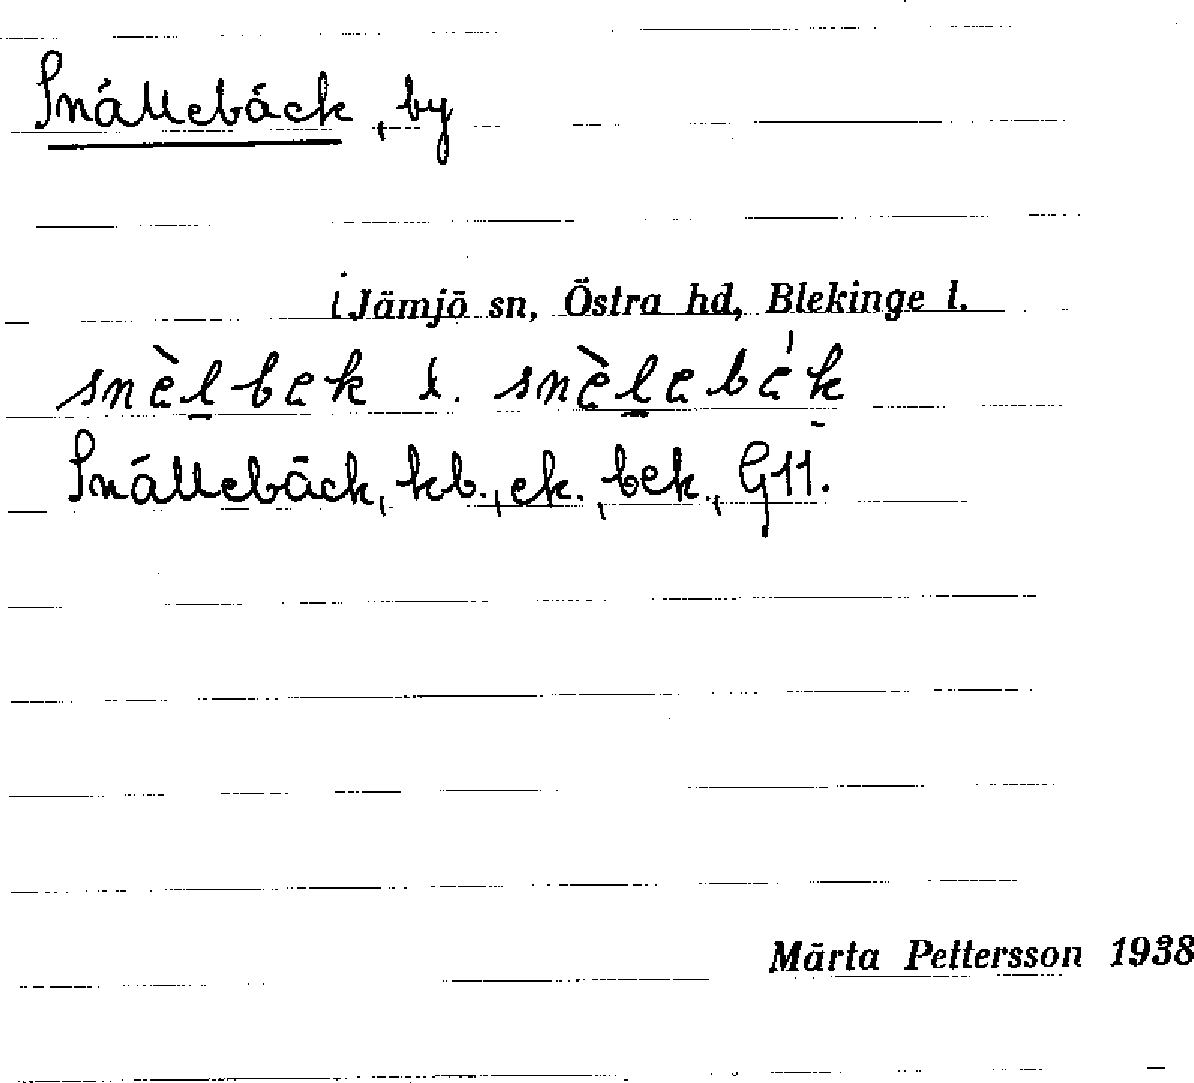 Snällebäck, by
i Jämjö sn, Östra hd, Blekinge l.
snèlbek l. snèlebék
Snällebäck, kb., ek., bek., G11.
Märta Pettersson 1938